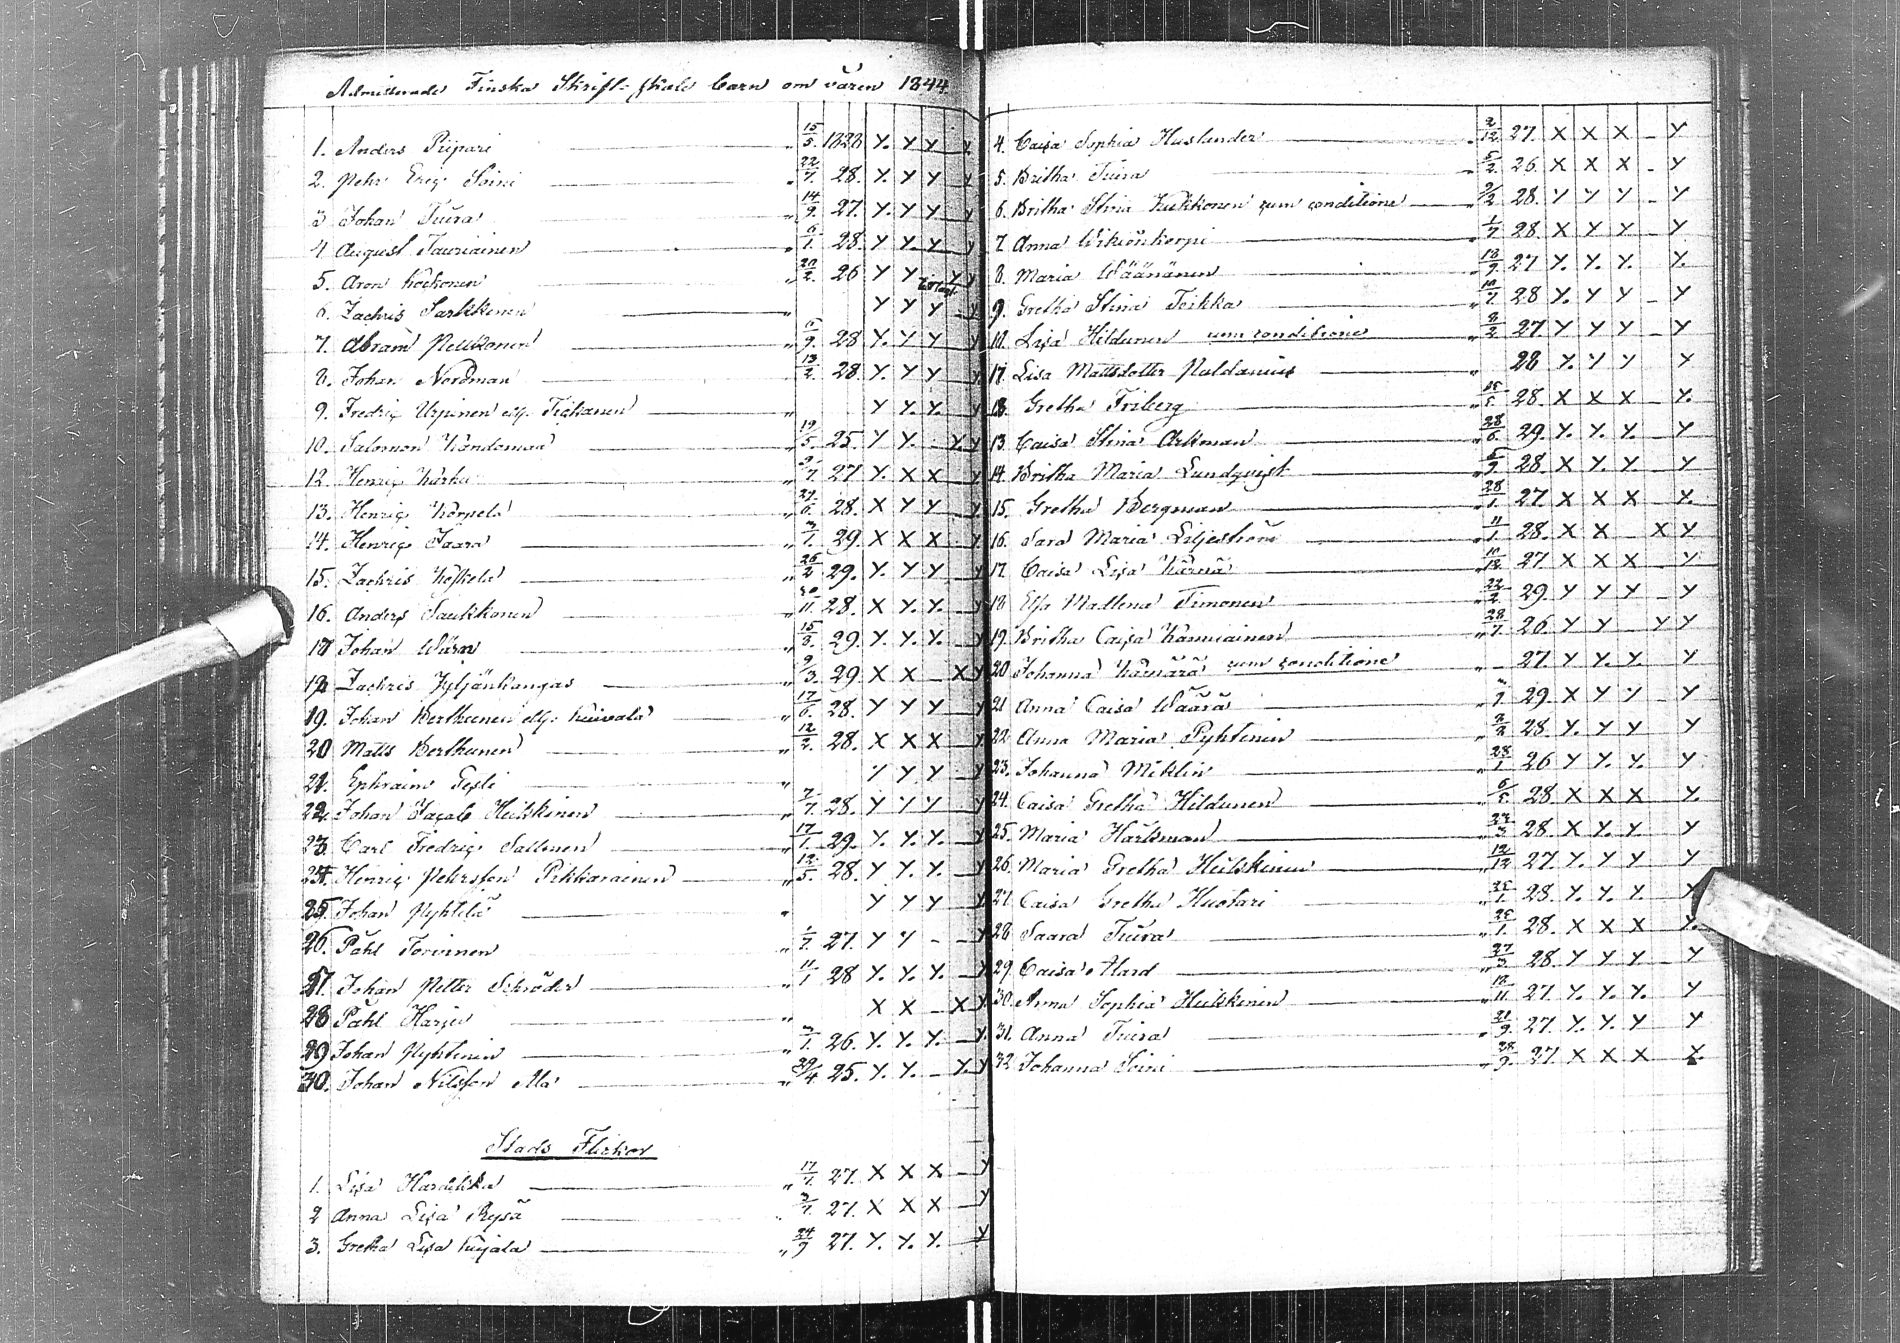 Admitterade Finska Skriftskole barn om våren 1844.
1. Anders Piipari " 15/5. 1828 Y. Y Y Y
2. Pehr Eric Soini " 22/7. 28. Y. Y Y Y
3 Johan Tuira " 14/9. 27. Y. Y Y Y
4 August Tauriainen " 6/1. 28. Y Y Y Y
5. Aron Kockonen " 20/2. 26 Y Y Y Y
6. Zachris Sarkkinen " Y Y Y Y
7. Abram Pelkonen " 9. 28 Y. Y Y Y
8. Johan Nordman " 13/2. 28. Y. Y Y Y
9. Fredric Urpinen ell. Tickanen " Y Y. Y. Y
10. Salomon " 19/5 25. Y Y. - Y. Y
12. Henric Kärki " 7 27 Y. X X Y
13. Henric Korpela " 29/6. 28. X Y Y Y
14. Henric Jaara " 3/7. 29. X X X Y
15. Zachris Koskela " 26/2 29. Y. Y Y Y
16. Anders Saukkonen " 30/11. 28. X Y. Y. Y
17 Johan Wärn " 15/3. 29. Y. Y. Y. Y
18 Zachris Jyljänkangas " 9/3. 29. X X - X Y
19. Johan Karthunen ell. Kuivala " 17/6. 28. Y Y Y Y
20 Matts Karthunen " 12/2. 28. X X X Y
21. Ephraim " Y Y Y Y
22. Johan Jacob Heikkinen " 7/7. 28. Y Y Y Y
23. Carl Fredric Sallinen " 17/1. 29. Y. Y. Y. Y
24. Henric Pehrsson Pikkarainen " 12/5. 28. Y Y. Y. Y
25 Johan Pyhtilä " Y Y Y Y
26. Påhl Torvinen " 1/7. 27. Y Y - - Y
27. Johan Petter Schröder " 11/1 28 Y. Y. Y. Y
28 Påhl Harju " X X - X Y
29 Johan Pyhtinen " 3/1. 26. Y. Y. Y. Y.
30. Johan Nilsson Ala " 29/4 25. Y. Y. - Y. Y
Stads Flickor
1. Lisa Hardikka " 17/7. 27. X X X - Y
2 Anna Lisa Rysä " 3/7. 27. X X X - Y
3. Gretha Lisa Kujala " 24/9 27. Y. Y. Y. - Y
4. Caisa Sophia Huslander " 2/12 27. X X X - Y
5. Britha Tuira " 5/2. 26. X X X - Y
6. Britha Stina Kukkonen cum conditione " 9/2 28. Y Y Y - Y
7. Anna Wiiriönkorpi " 1/7 28. X Y Y Y
8. Maria Wäänänen " 18/9. 27 Y. Y. Y. Y.
9. Gretha Stina Toikka " 10/7. 28 Y. Y Y - Y
10. Lisa Hildunen cum conditione " 8/2. 27. Y Y Y - Y
11. Lisa Mattsdotter Paldanius " 28 Y. Y Y Y
12. Gretha Friberg " 15/5. 28. X X X - Y.
13. Caisa Stina Arkman " 28/6. 29. Y. Y. Y. - Y
14. Britha Maria Lundqvist " 5/9. 28. X Y. Y - Y
15. Gretha Bergman " 28/1. 27. X X X - Y.
16. Sara Maria Liljeström " 11/1. 28. X X - X Y
17. Caisa Lisa Kärnä " 10/12. 27. X X X - Y
18 Elsa Madlena Timonen " 22/2. 29. Y Y Y - Y
19. Britha Caisa Kämäräinen " 28/7 26. Y Y - Y Y
20 Johanna Kämärä cum conditione " - 27. Y Y. Y. Y
21 Anna Caisa Wäärä " 7 29. X Y Y - Y
22. Anna Maria Pyhtinen " 2/2 28. Y. Y Y Y
23. Johanna Miklin " 28/1 26 Y Y. Y. Y
24. Caisa Gretha Hildunen " 6/5. 28. X X X Y.
25. Maria Harkman " 27/3 28. X Y. Y. Y
26. Maria Gretha Heikkinen " 12/12 27. Y. Y Y Y
27. Caisa Gretha Huotari " 25/1. 28. Y. Y. Y. Y
28 Saara Tuira " 25/1. 28. X X X Y.
29. Caisa Hard " 27/3 28. Y Y Y - Y
30. Anna Sophia Heikkinen " 18/11. 27. Y. Y. Y. Y
31. Anna Tuira " 21/9. 27. Y. Y. Y Y
32. Johanna Soini " 28/9. 27. X X X Y.